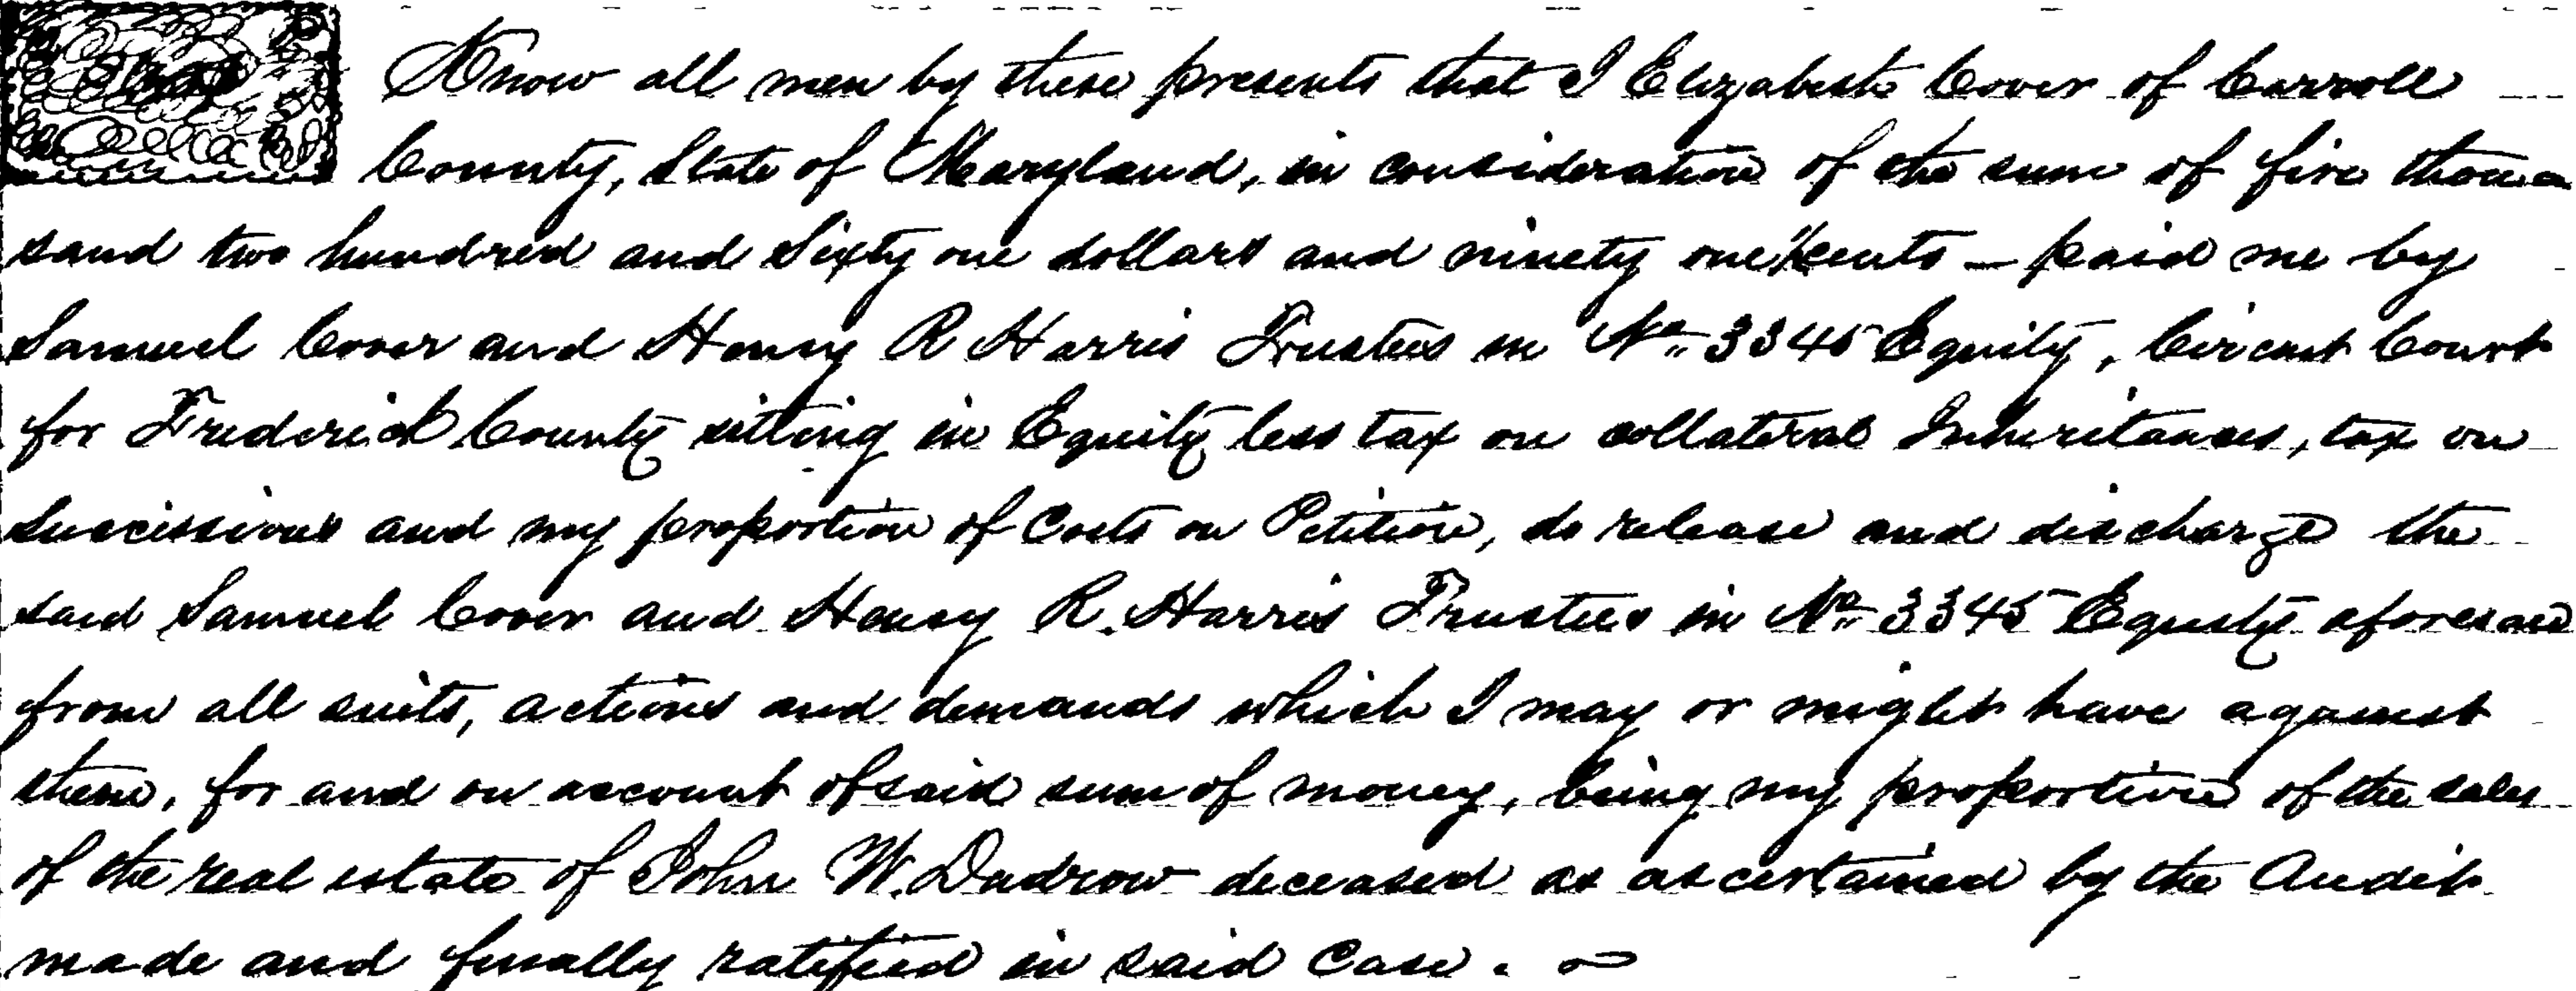 Know all men by these presents that I Elizabeth Cover of Carroll
County, State of Maryland, in consideration of the sum of five thou-
sand two hundred and Sixty one dollars and ninety one cents - paid me by
Samuel Cover and Henry R Harris Trustees in No. 3345 Equity, Circuit Court
for Frederick County sitting in Equity less tax on collateral Inheritances, tax on
Successions and my proportion of Costs on Petition, do release and discharge the
said Samuel Cover and Henry R. Harris Trustees in No. 3345 Equity aforesaid
from all suits, actions and demands which I may or might have against
them, for and on account of said sum of money, being my proportion of the sales
of the real estate of John W. Dudrow deceased as ascertained by the Audit
made and finally ratified in said Case.